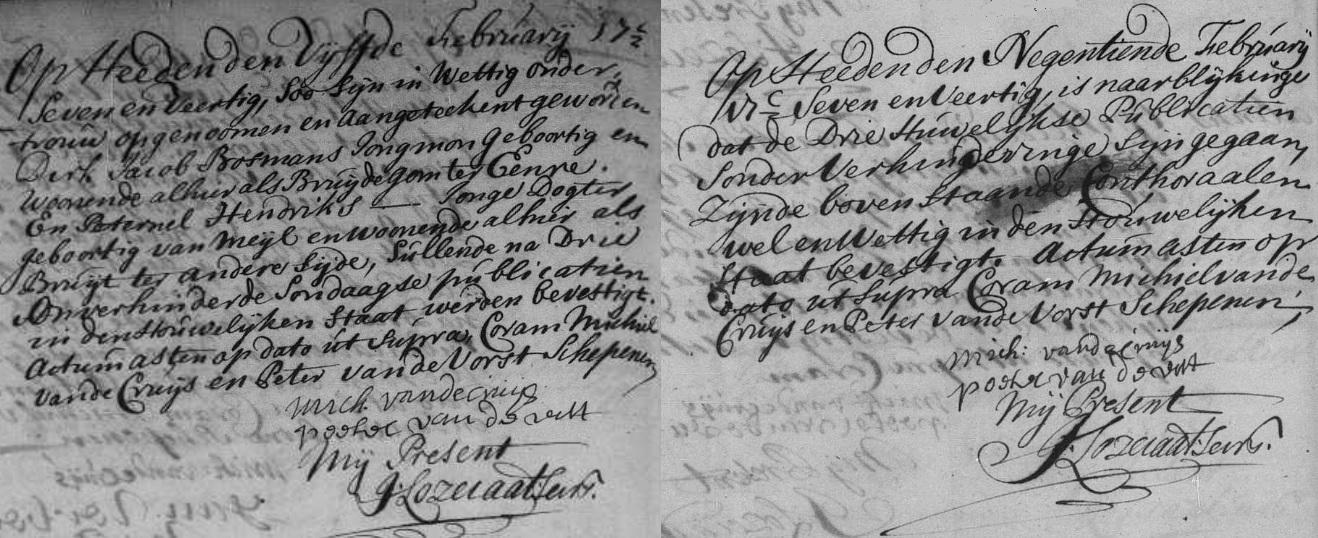 Op Heeden den Vijffde Februarij 17 c/2
Seven en Veertig, Soo Sijn in Wettig onder,
trouw opgenoomen en Aangeteekent geworden
Derk Jacob Bosmans Jongman Geboortig en
Woonende alhier als Bruijdegom ter Eenre.
En Peternel Hendriks — Jonge Dogter
geboortig van Meijl en woonende alhier als
Bruijt ter andere Sijde, Sullende na Drie
Onverhinderde Sondaagse publicatien
in den Houwelijken Staat werden bevestigt.
Actum Asten op dato ut Supra, Coram Michiel
vande Cruijs en Peter vande Vorst Schepenen,
Mich: vandecruijs
peeter van de vorst
Mij Present
Sect:s.
Op Heeden den Negentiende Februarij
17 c/2 Seven en Veertig, is naar blijkinge
dat de Drie Huwelijkse Publicatien
Sonder Verhinderinge Sijn gegaan,
Zijnde boven Staande Conthoraalen
wel en Wettig in den Houwelijken
Staat bevestigt. Actum Asten op
dato ut Supra Coram Michiel vande
Cruijs en Peter vande Vorst Schepenen,
Mich: vandecruijs
peeter van de vorst
Mij Present
Sect:s.